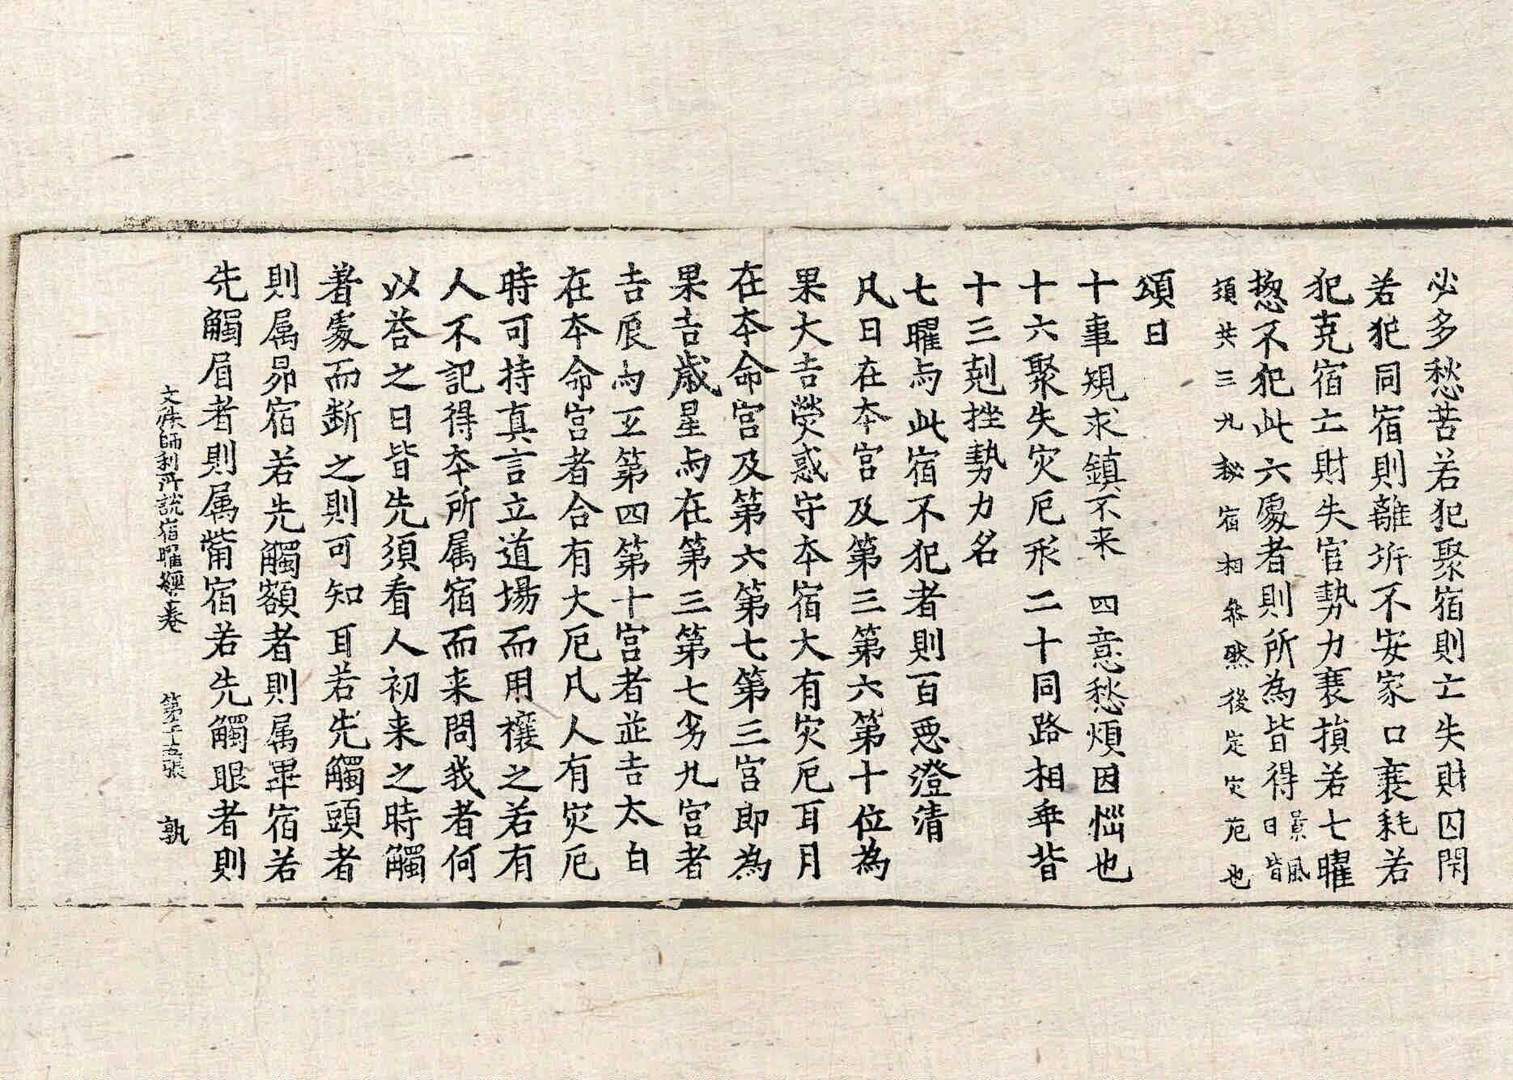 必多愁苦若犯聚宿則亡失財囚閇
若犯同宿則離坼不安家口衰耗若
犯克宿亡財失官勢力衰損若七曜
揔不犯此六處者則所為皆得景風日皆
須共三九秘宿相叅然後定灾厄也
頌曰
十事䂓求鎮不来 四意愁煩因惱也
十六聚失灾厄形 二十同路相乖背
十三剋挫勢力名
七曜与此宿不犯者則百惡澄清
凡日在本宮及第三第六第十位為
果大吉熒惑守本宿大有灾厄耳月
在本命宮及第六第七第三宮即為
果吉歲星与在第三第七第九宮者
吉辰与五第四第十宮者並吉太白
在本命宮者合有大厄凡人有灾厄
時可持真言立道場而用禳之若有
人不記得本所属宿而来問我者何
以荅之曰皆先須看人初来之時觸
著處而断之則可知耳若先觸頭者
則属昴宿若先觸額者則属畢宿若
先觸眉者則属觜宿若先觸眼者則
文殊師利所說宿曜經卷 第二十五張 孰